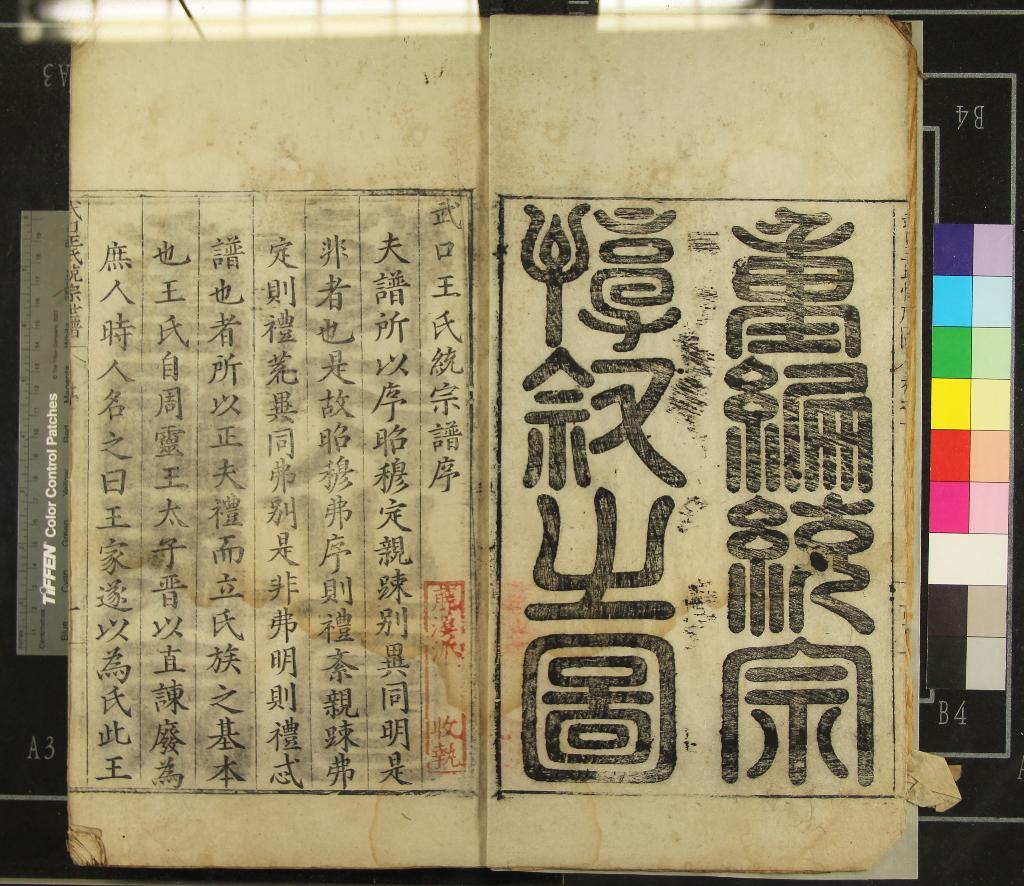 重編統宗
惇叙之圖
武口王氏統宗譜序
溪派 收執
夫譜所以序昭穆定親踈别異同明是
非者也是故昭穆弗序則禮紊親踈弗
定則禮荒異同弗别是非弗明則禮忒
譜也者所以正夫禮而立氏族之基本
也王氏自周靈王太子晉以直諫廢為
庶人時人名之曰王家遂以為氏此王
武口王氏統宗世譜
TIFFEN Color Control Patches
A3
A3
B4
B4